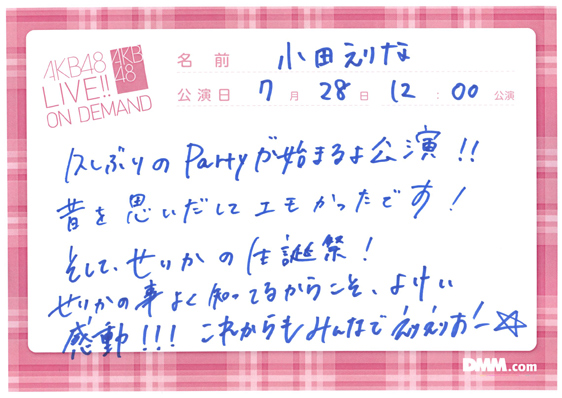 AKB48
LIVE!!
ON DEMAND
AKB
48
名前 小田えりな
公演日 7月28日 12:00 公演
久しぶりのPartyが始まるよ公演!!
昔を思いだしてエモかったです!
そして、せりかの生誕祭!
せりかの事よく知ってるからこそ、よけい
感動!!! これからもみんなで えいえいおー☆
DMM.com